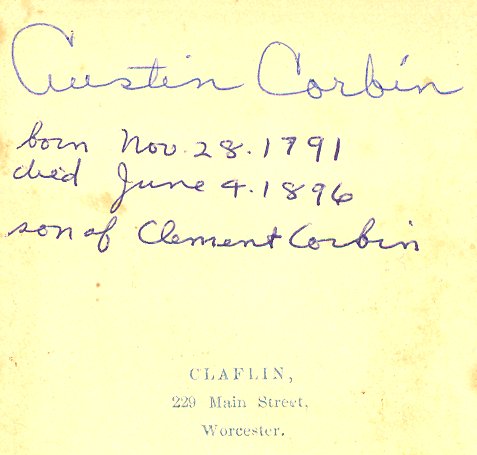 Austin Corbin
born Nov. 28. 1791
died June 4. 1896
son of Clement Corbin
CLAFLIN,
229 Main Street,
Worcester.